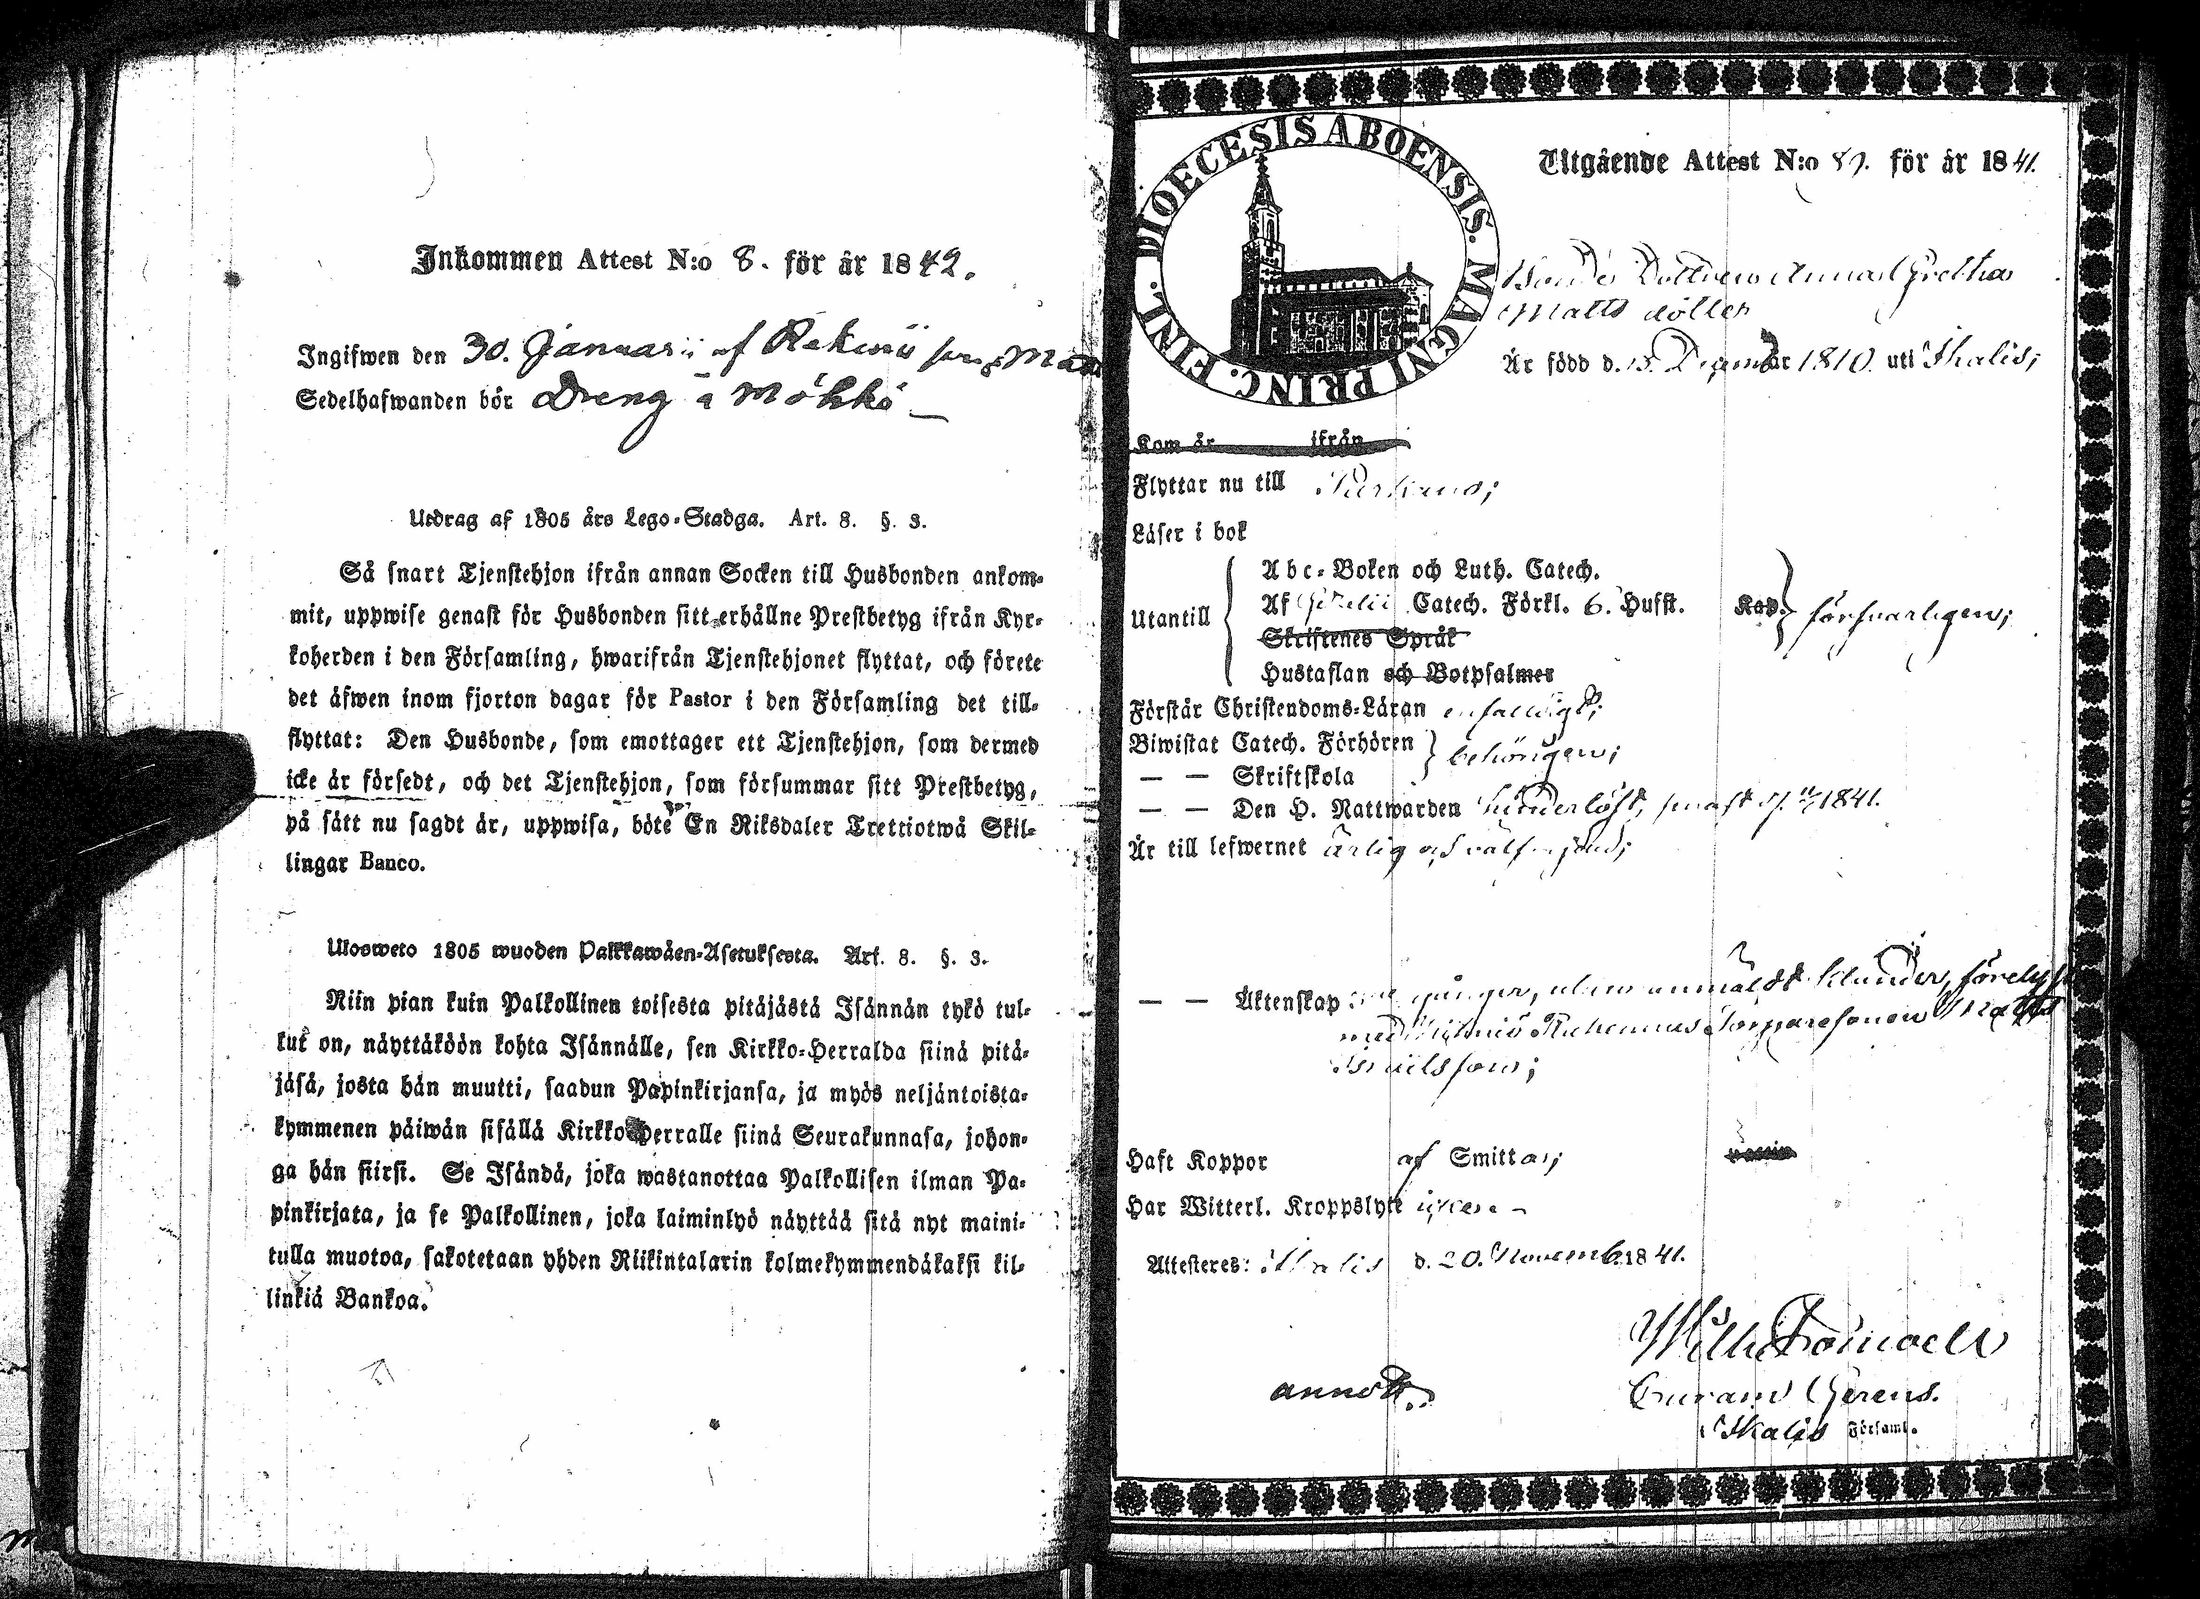 Inkommen Attest N:o 8. för år 1842.
Ingifwen den 30. Januarii af
Sedelhafwanden bör Dreng å Möhkö
Utdrag af 1805 års Lego-Stadga. Art. 8. §. 3.
Så snart Tjenstehjon ifrån annan Socken till Husbonden ankom-
mit, uppwise genast för Husbonden sitt erhållne Prestbetyg ifrån Kyr-
koherden i den Församling, hwarifrån Tjenstehjonet flyttat, och förete
det äfwen inom fjorton dagar för Pastor i den Församling det till-
flyttat: Den Husbonde, som emottager ett Tjenstehjon, som dermed
icke är försedt, och det Tjenstehjon, som försummar sitt Prestbetyg,
på sätt nu sagdt är, uppwisa, böte En Riksdaler Trettiotwå Skil-
lingar Banco.
Ulosweto 1805 wuoden Palkkawäen-Asetuksesta. Art. 8. §. 3.
Niin pian kuin Palkollinen toisesta pitäjästä Isännän tykö tul-
lut on, näyttäköön kohta Isännälle, sen Kirkko-Herralda siinä pitä-
jäsä, josta hän muutti, saadun Papinkirjansa, ja myös neljäntoista-
kymmenen päiwän sisällä Kirkko-Herralle siinä Seurakunnasa, johon-
ga hän siirsi. Se Isändä, joka wastanottaa Palkollisen ilman Pa-
pinkirjata, ja se Palkollinen, joka laiminlyö näyttää sitä nyt maini-
tulla muotoa, sakotetaan yhden Riikintalarin kolmekymmendäkaksi kil-
linkiä Bankoa.
DIOECESIS ABOENSIS. MAGNI PRINC. FINL.
Utgående Attest N:o för år 1841.
Bonde Dottren Anna Gretha
Matts dotter
Är född d. 15. Decemb 1810. uti Ikalis;
Kom år ifrån
Flyttar nu till
Läser i bok
Utantill
Abc-Boken och Luth. Catech.
Af Gezelii Catech. Förkl. 6. Hufst. Kap. försvarligen;
Skriftenes Språk
Hustaflan och Botpsalmer
Förstår Christendoms-Läran enfaldigt;
Biwistat Catech. Förhören
behörigen;
— — Skriftskola
— — Den H. Nattwarden 1841.
Är till lefwernet ärlig och välfrejdad;
— — Äktenskap gånger, utan anmäldt hinder,
med
Israelsson;
Haft Koppor af Smittas;
Har Witterl. Kroppslyte icke. -
Attesteres: Ikalis d. 20. Novemb. 1841.
Curam Gerens.
annot.
i Ikalis Församl.